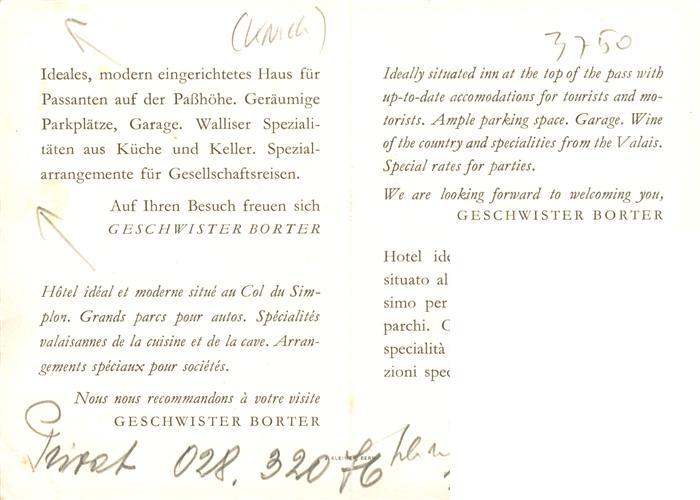 (Knich)
Ideales, modern eingerichtetes Haus für
Passanten auf der Paßhöhe. Geräumige
Parkplätze, Garage. Walliser Speziali-
täten aus Küche und Keller. Spezial-
arrangemente für Gesellschaftsreisen.
Auf Ihren Besuch freuen sich
GESCHWISTER BORTER
Hôtel idéal et moderne situé au Col du Sim-
plon. Grands parcs pour autos. Spécialités
valaisannes de la cuisine et de la cave. Arran-
gements spéciaux pour sociétés.
Nous nous recommandons à votre visite
GESCHWISTER BORTER
Privat 028. 320 76
KLEINER, BERN
3750
Ideally situated inn at the top of the pass with
up-to-date accomodations for tourists and mo-
torists. Ample parking space. Garage. Wine
of the country and specialities from the Valais.
Special rates for parties.
We are looking forward to welcoming you,
GESCHWISTER BORTER
Hotel ide
situato al
simo per
parchi.
specialità
zioni spec